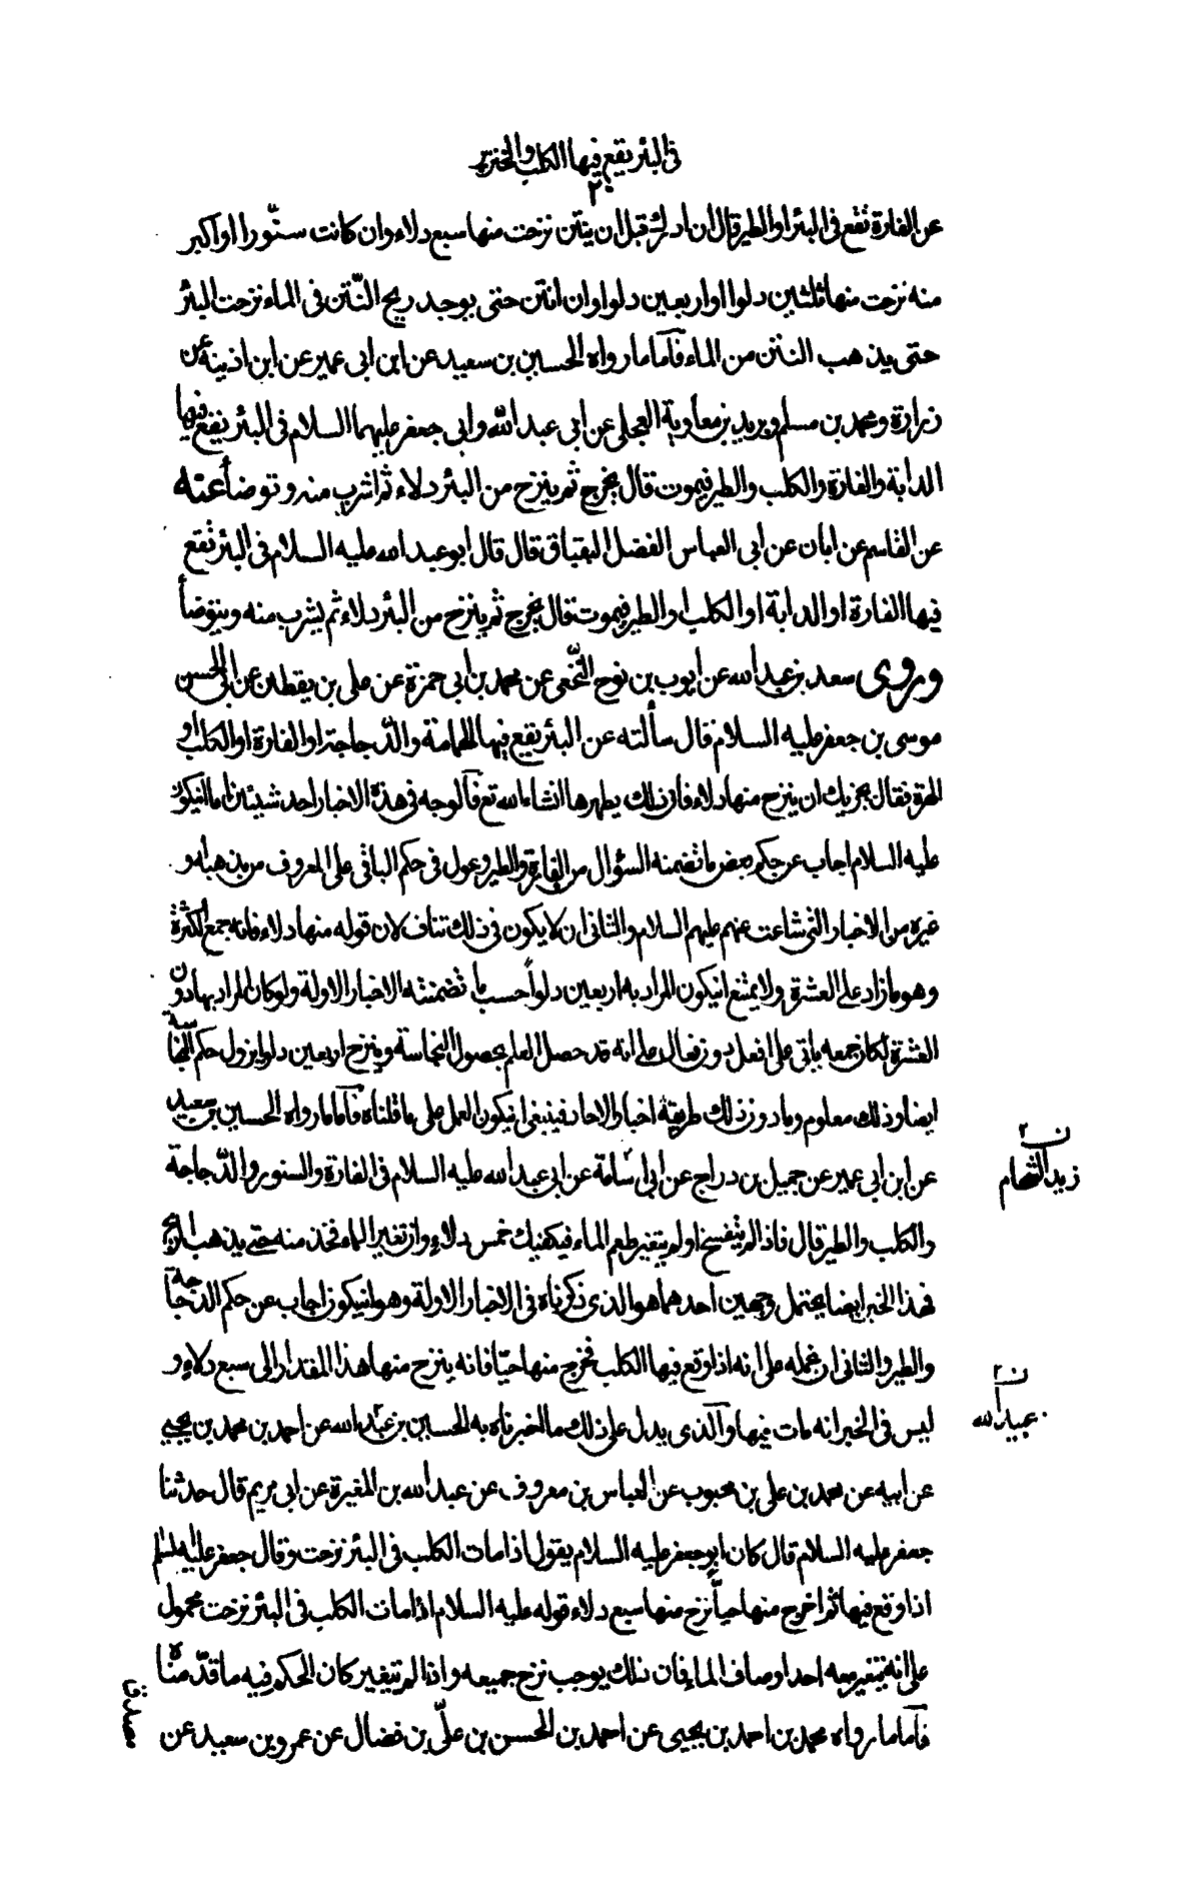 فى البئر يقع فيها الكلب والخنزير
٢٠
عن الفارة تقع فى البئر او الطير قال ان ادركته قبل ان ينتن نزحت منها سبع دلاء وان كانت سنّورا او اكبر
منه نزحت منها ثلثين دلوا او اربعين دلوا وان انتن حتى يوجد ريح النّتن فى الماء نزحت البئر
حتى يذهب النتن من الماء فأما ما رواه الحسين بن سعيد عن ابن ابى عمير عن ابن اذينه عن
زرارة ومحمد بن مسلم وبريد بن معاوية العجلى عن ابى عبد الله وابى جعفر عليهما السلام فى البئر يقع فيها
الدابة والفارة والكلب والطير فيموت قال يخرج ثم ينزح من البئر دلاء ثم اشرب منه و توضأ عنه
عن القاسم عن ابان عن ابى العباس الفضل البقباق قال قال ابو عبد الله عليه السلام فى البئر تقع
فيها الفارة او الدابة او الكلب او الطير فيموت قال يخرج ثم ينزح من البئر دلاء ثم يشرب منه ويتوضأ
وروى سعد بن عبد الله عن ايوب بن نوح النّخعى عن محمد بن ابى حمزة عن على بن يقطين عن ابى الحسن
موسى بن جعفر عليه السلام قال سألته عن البئر يقع فيها الحمامة والدّجاجة او الفارة او الكلب او
الهرة فقال يجزيك ان ينزح منها دلاء فان ذلك يطهرها انشاء الله تع فآلوجه فى هذه الاخبار احد شيئين اما انيكون
عليه السلام اجاب عن حكم بعض ما تضمنه السؤال من الفارة والطير وعول فى حكم الباقى على المعروف من مذهبه او
غيره من الاخبار التى شاعت عنهم عليهم السلام والثانى ان لا يكون فى ذلك تناف لان قوله منها دلاء فانه جمع الكثرة
وهو ما زاد على العشرة ولا يمتنع انيكون المراد به اربعين دلواً حسب ما تضمنته الاخبار الاولة ولو كان المراد بها دون
العشرة لكان جمعه ياتى على افعل دون فعال على انه قد حصل العلم بحصول النجاسة وبنزح اربعين دلوا يزول حكم النجاسة
ايضا وذلك معلوم وما دون ذلك طريقة اخبار الاحاد فينبغى انيكون العمل على ما قلناه فآما ما رواه الحسين بن سعيد
عن ابن ابى عمير عن جميل بن دراج عن ابى اسامة عن ابى عبد الله عليه السلام فى الفارة والسنور والدّجاجة
ن ٢
زيد الشحام
والكلب والطير قال فاذا لم يتفسخ او لم يتغير طعم الماء فيكفيك خمس دلاء وان تغير الماء فخذ منه حتى يذهب الريح
فهذا الخبر ايضا يحتمل وجهين احدهما هو الذى ذكرناه فى الاخبار الاولة وهو انيكون اجاب عن حكم الدجاجة
والطير والثانى ان نحمله على انه اذا وقع فيها الكلب فخرج منها حيّا فانه ينزح منها هذا المقدار الى سبع دلاء و
ليس فى الخبر انه مات فيها وآلذى يدل على ذلك ما اخبرنا به الحسين بن عبد الله عن احمد بن محمد بن يحيى
ن ٢
عبيد الله
عن ابيه عن محمد بن على بن محبوب عن العباس بن معروف عن عبد الله بن المغيرة عن ابى مريم قال حدثنا
جعفر عليه السلام قال كان ابو جعفر عليه السلام يقول اذا مات الكلب فى البئر نزحت وقال جعفر عليه السلم
اذا وقع فيها ثم اخرج منها حياً نزح منها سبع دلاء قوله عليه السلام اذا مات الكلب فى البئر نزحت محمول
على انه يتغير معه احد اوصاف الماء فان ذلك يوجب نزح جميعه واذا لم يتغير كان الحكم فيه ما قدّمناه
فآما ما رواه محمد بن احمد بن يحيى عن احمد بن الحسن بن علىّ بن فضال عن عمرو بن سعيد عن
مصدق